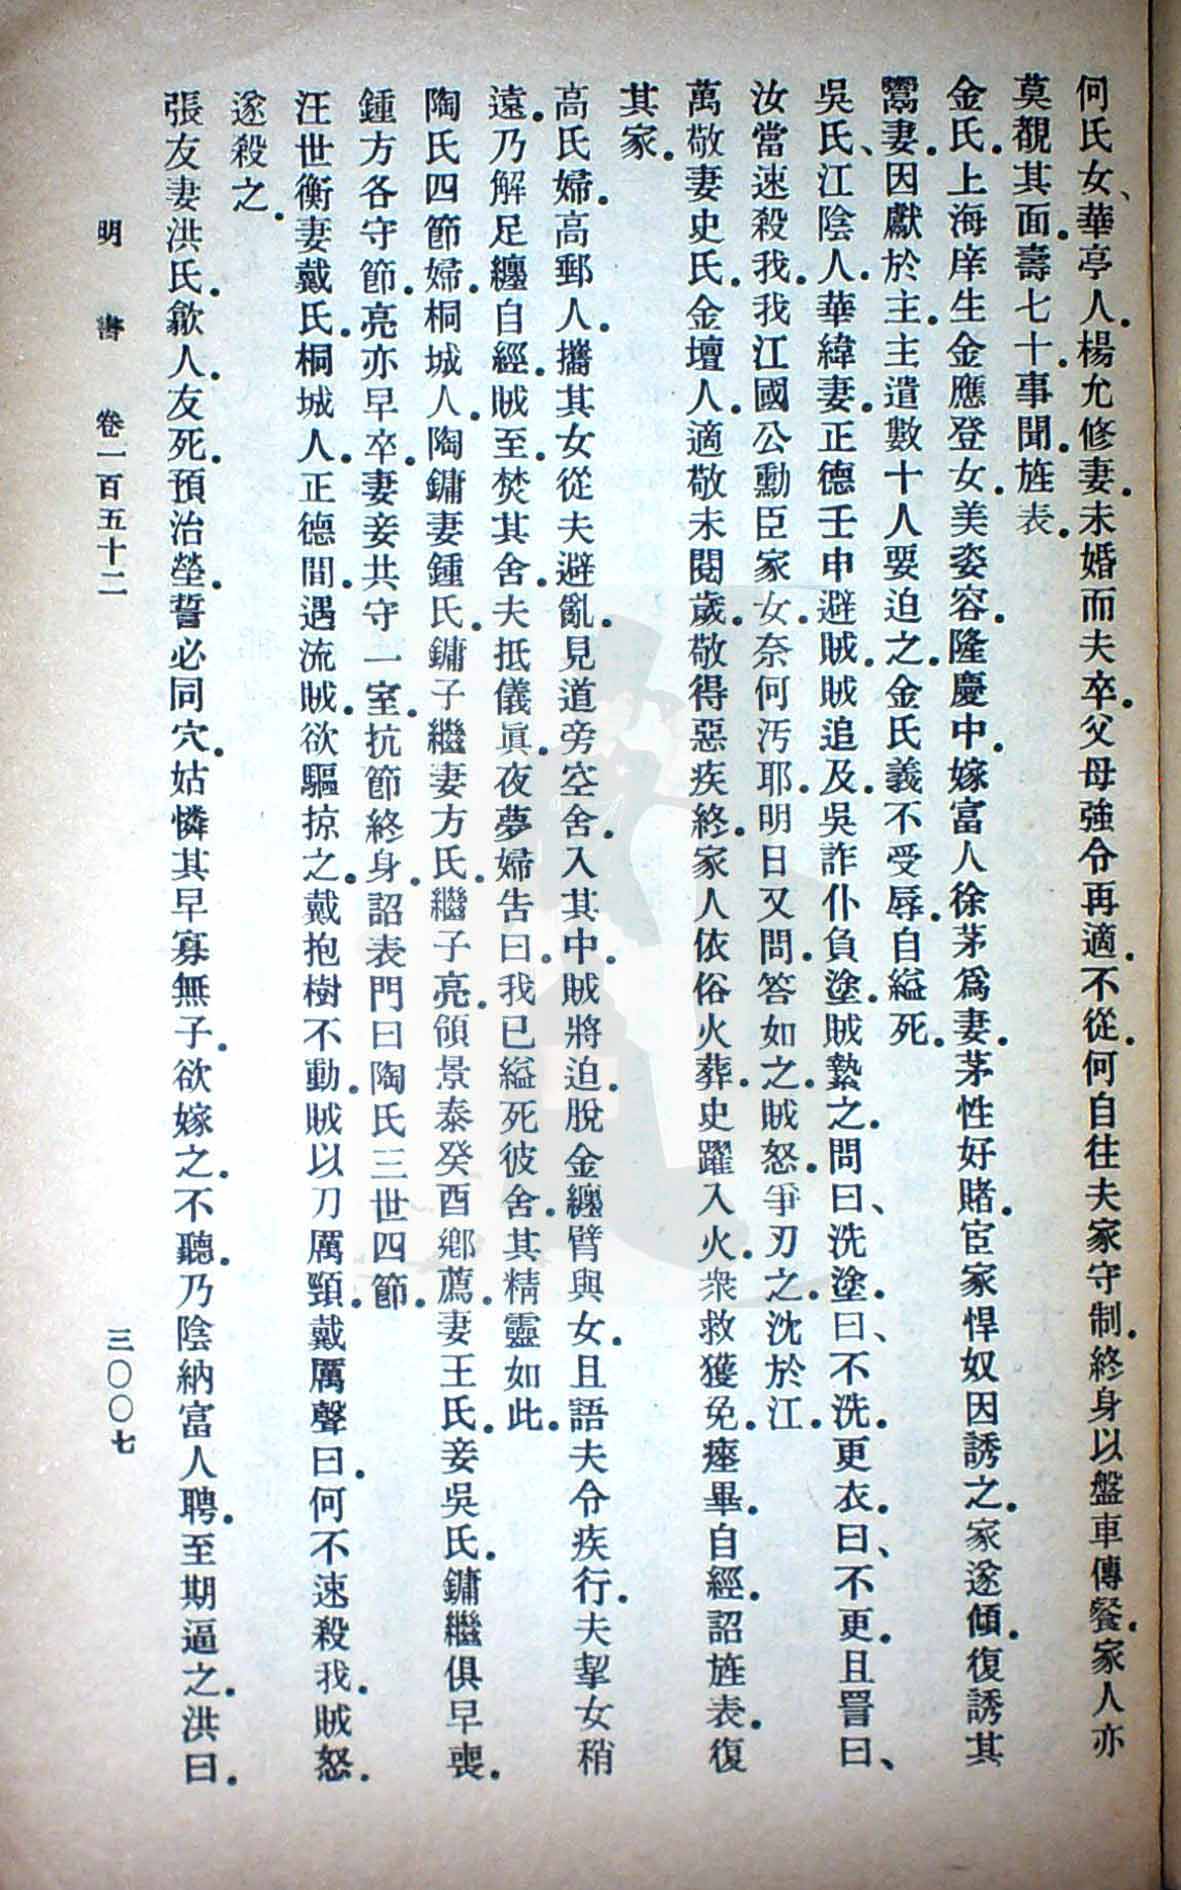 何氏女、華亭人。楊允修妻。未婚而夫卒。父母強令再適。不從。何自往夫家守制。終身以盤車傳餐。家人亦
莫覩其面。壽七十。事聞。旌表。
金氏。上海庠生金應登女。美姿容。隆慶中。嫁富人徐茅爲妻。茅性好賭。宦家悍奴因誘之。家遂傾。復誘其
鬻妻。因獻於主。主遣數十人要迫之。金氏義不受辱。自縊死。
吳氏、江陰人。華緯妻。正德壬申避賊。賊追及。吳詐仆負塗。賊縶之。問曰、洗塗。曰、不洗。更衣。曰、不更。且詈曰、
汝當速殺我。我江國公勳臣家女。奈何汚耶。明日又問。答如之。賊怒。爭刃之。沈於江。
萬敬妻史氏。金壇人。適敬未閱歲。敬得惡疾終。家人依俗火葬。史躍入火。衆救獲免。瘞畢。自經。詔旌表。復
其家。
高氏婦。高郵人。攜其女從夫避亂。見道旁空舍。入其中。賊將迫。脫金纏臂與女。且語夫令疾行。夫挈女稍
遠。乃解足纏自經。賊至。焚其舍。夫抵儀眞。夜夢婦告曰。我已縊死彼舍。其精靈如此。
陶氏四節婦。桐城人。陶鏞妻鍾氏。鏞子繼妻方氏。繼子亮。領景泰癸酉鄉薦。妻王氏。妾吳氏。鏞繼俱早喪。
鍾方各守節。亮亦早卒。妻妾共守一室。抗節終身。詔表門曰陶氏三世四節。
汪世衡妻戴氏。桐城人。正德間。遇流賊。欲驅掠之。戴抱樹不動。賊以刀厲頸。戴厲聲曰。何不速殺我。賊怒。
遂殺之。
張友妻洪氏。歙人。友死。預治塋。誓必同穴。姑憐其早寡無子。欲嫁之。不聽。乃陰納富人聘。至期逼之。洪曰。
明書 卷一百五十二 三〇〇七